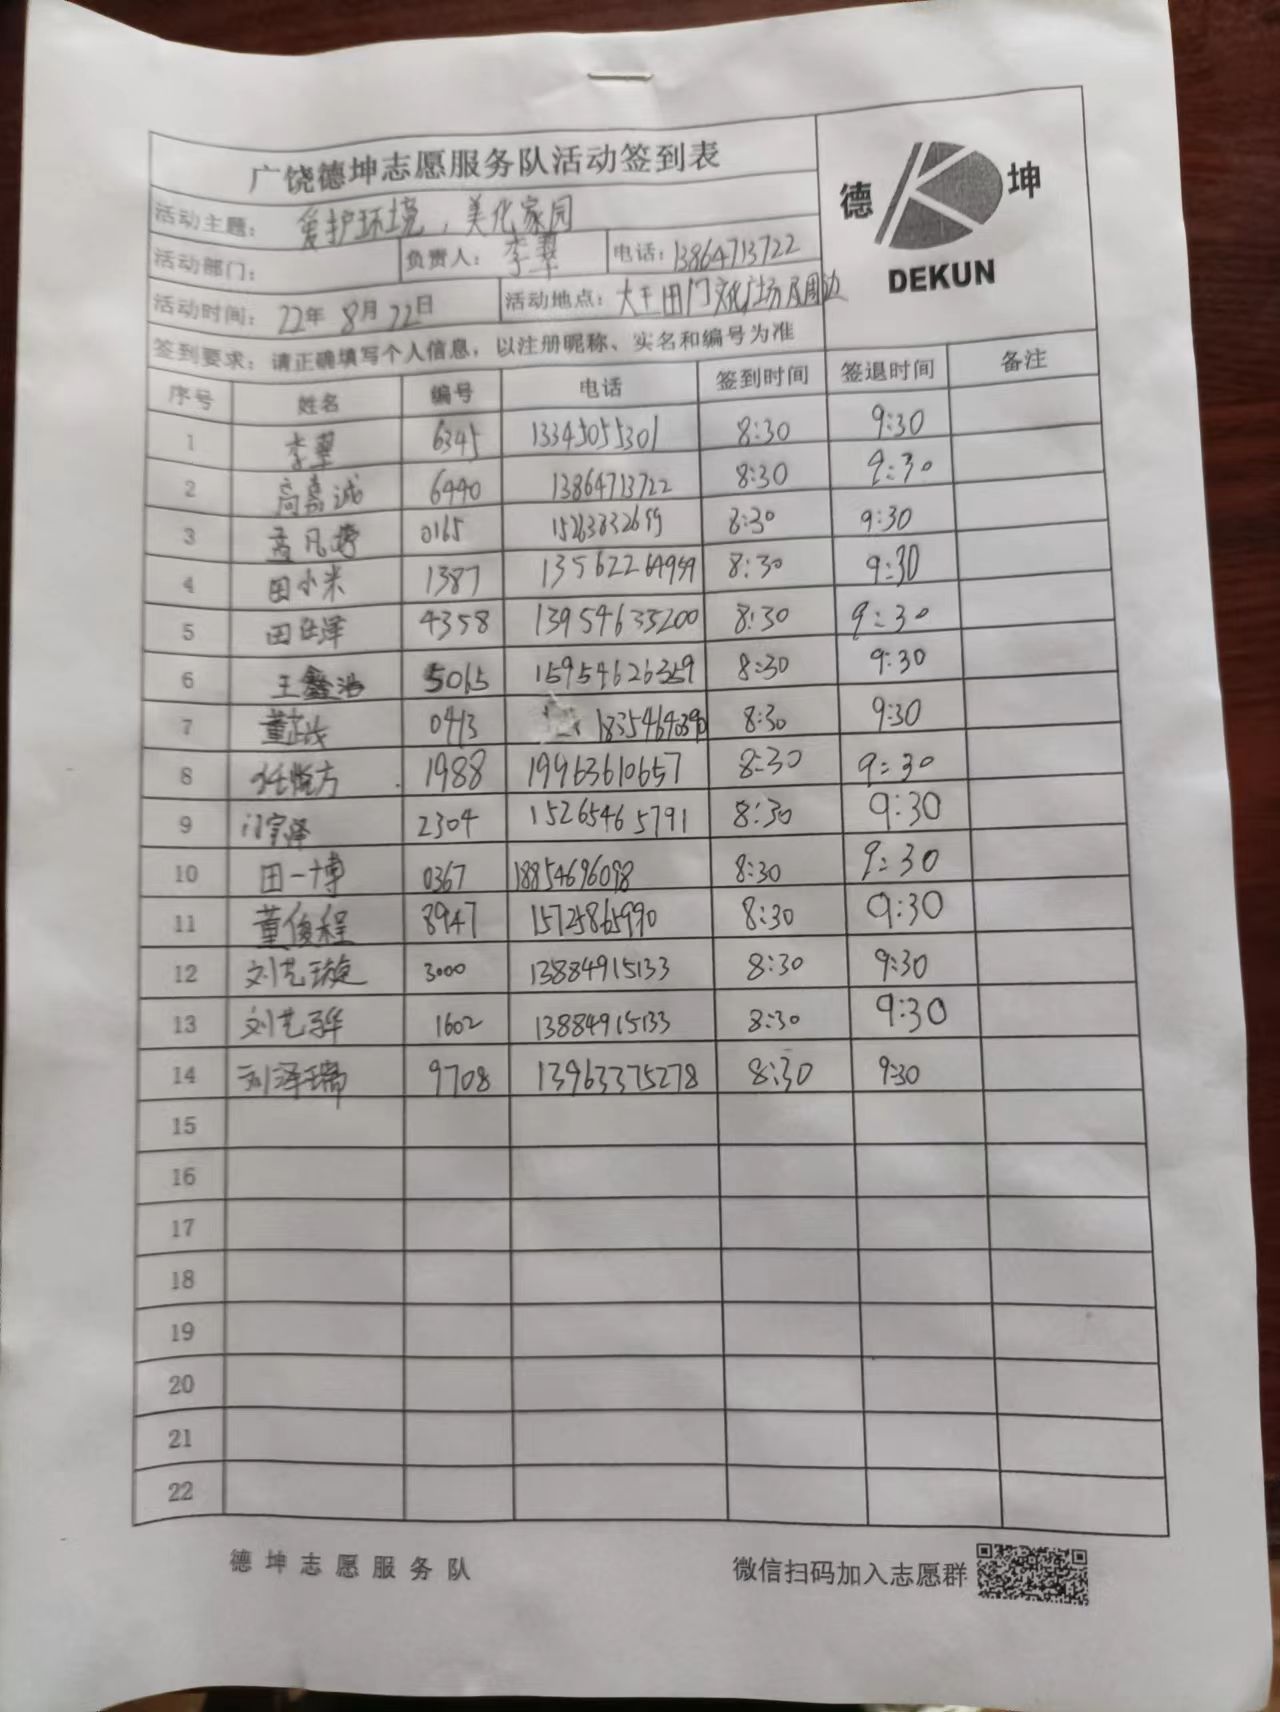 广饶德坤志愿服务队活动签到表
德 坤
DEKUN
活动主题: 爱护环境,美化家园
活动部门: 负责人: 李翠 电话: 13864713722
活动时间: 22年 8月 22日 活动地点: 大王田门文化广场及周边
签到要求: 请正确填写个人信息, 以注册昵称、实名和编号为准
序号 姓名 编号 电话 签到时间 签退时间 备注
1 李翠 6345 13345055301 8:30 9:30
2 高嘉诚 6440 13864713722 8:30 9:30
3 0165 8:30 9:30
4 田小米 1387 13562264959 8:30 9:30
5 田 泽 4358 13954635200 8:30 9:30
6 王鑫浩 5065 15954626359 8:30 9:30
7 董 0413 8:30 9:30
8 任悦方 1988 19963610657 8:30 9:30
9 门宇泽 2304 15265465791 8:30 9:30
10 田一博 0367 18854696098 8:30 9:30
11 董俊程 8947 15725865990 8:30 9:30
12 刘艺璇 3000 13884915133 8:30 9:30
13 刘艺 1602 13884915133 8:30 9:30
14 刘泽瑞 9708 13963375278 8:30 9:30
15
16
17
18
19
20
21
22
德坤志愿服务队 微信扫码加入志愿群